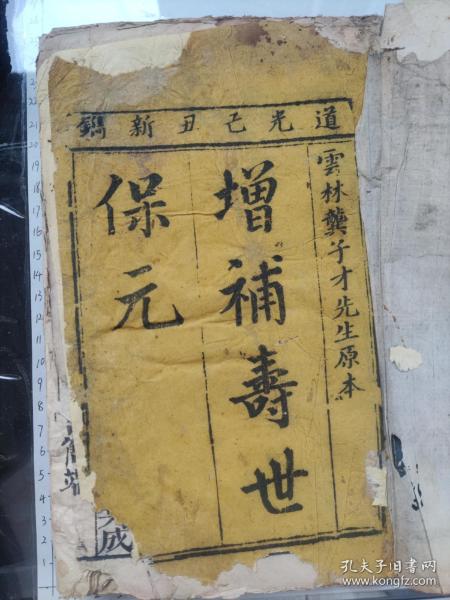 道光己丑新鐫
雲林龔子才先生原本
增補壽世
保元
成
孔夫子旧书网
www.kongfz.com